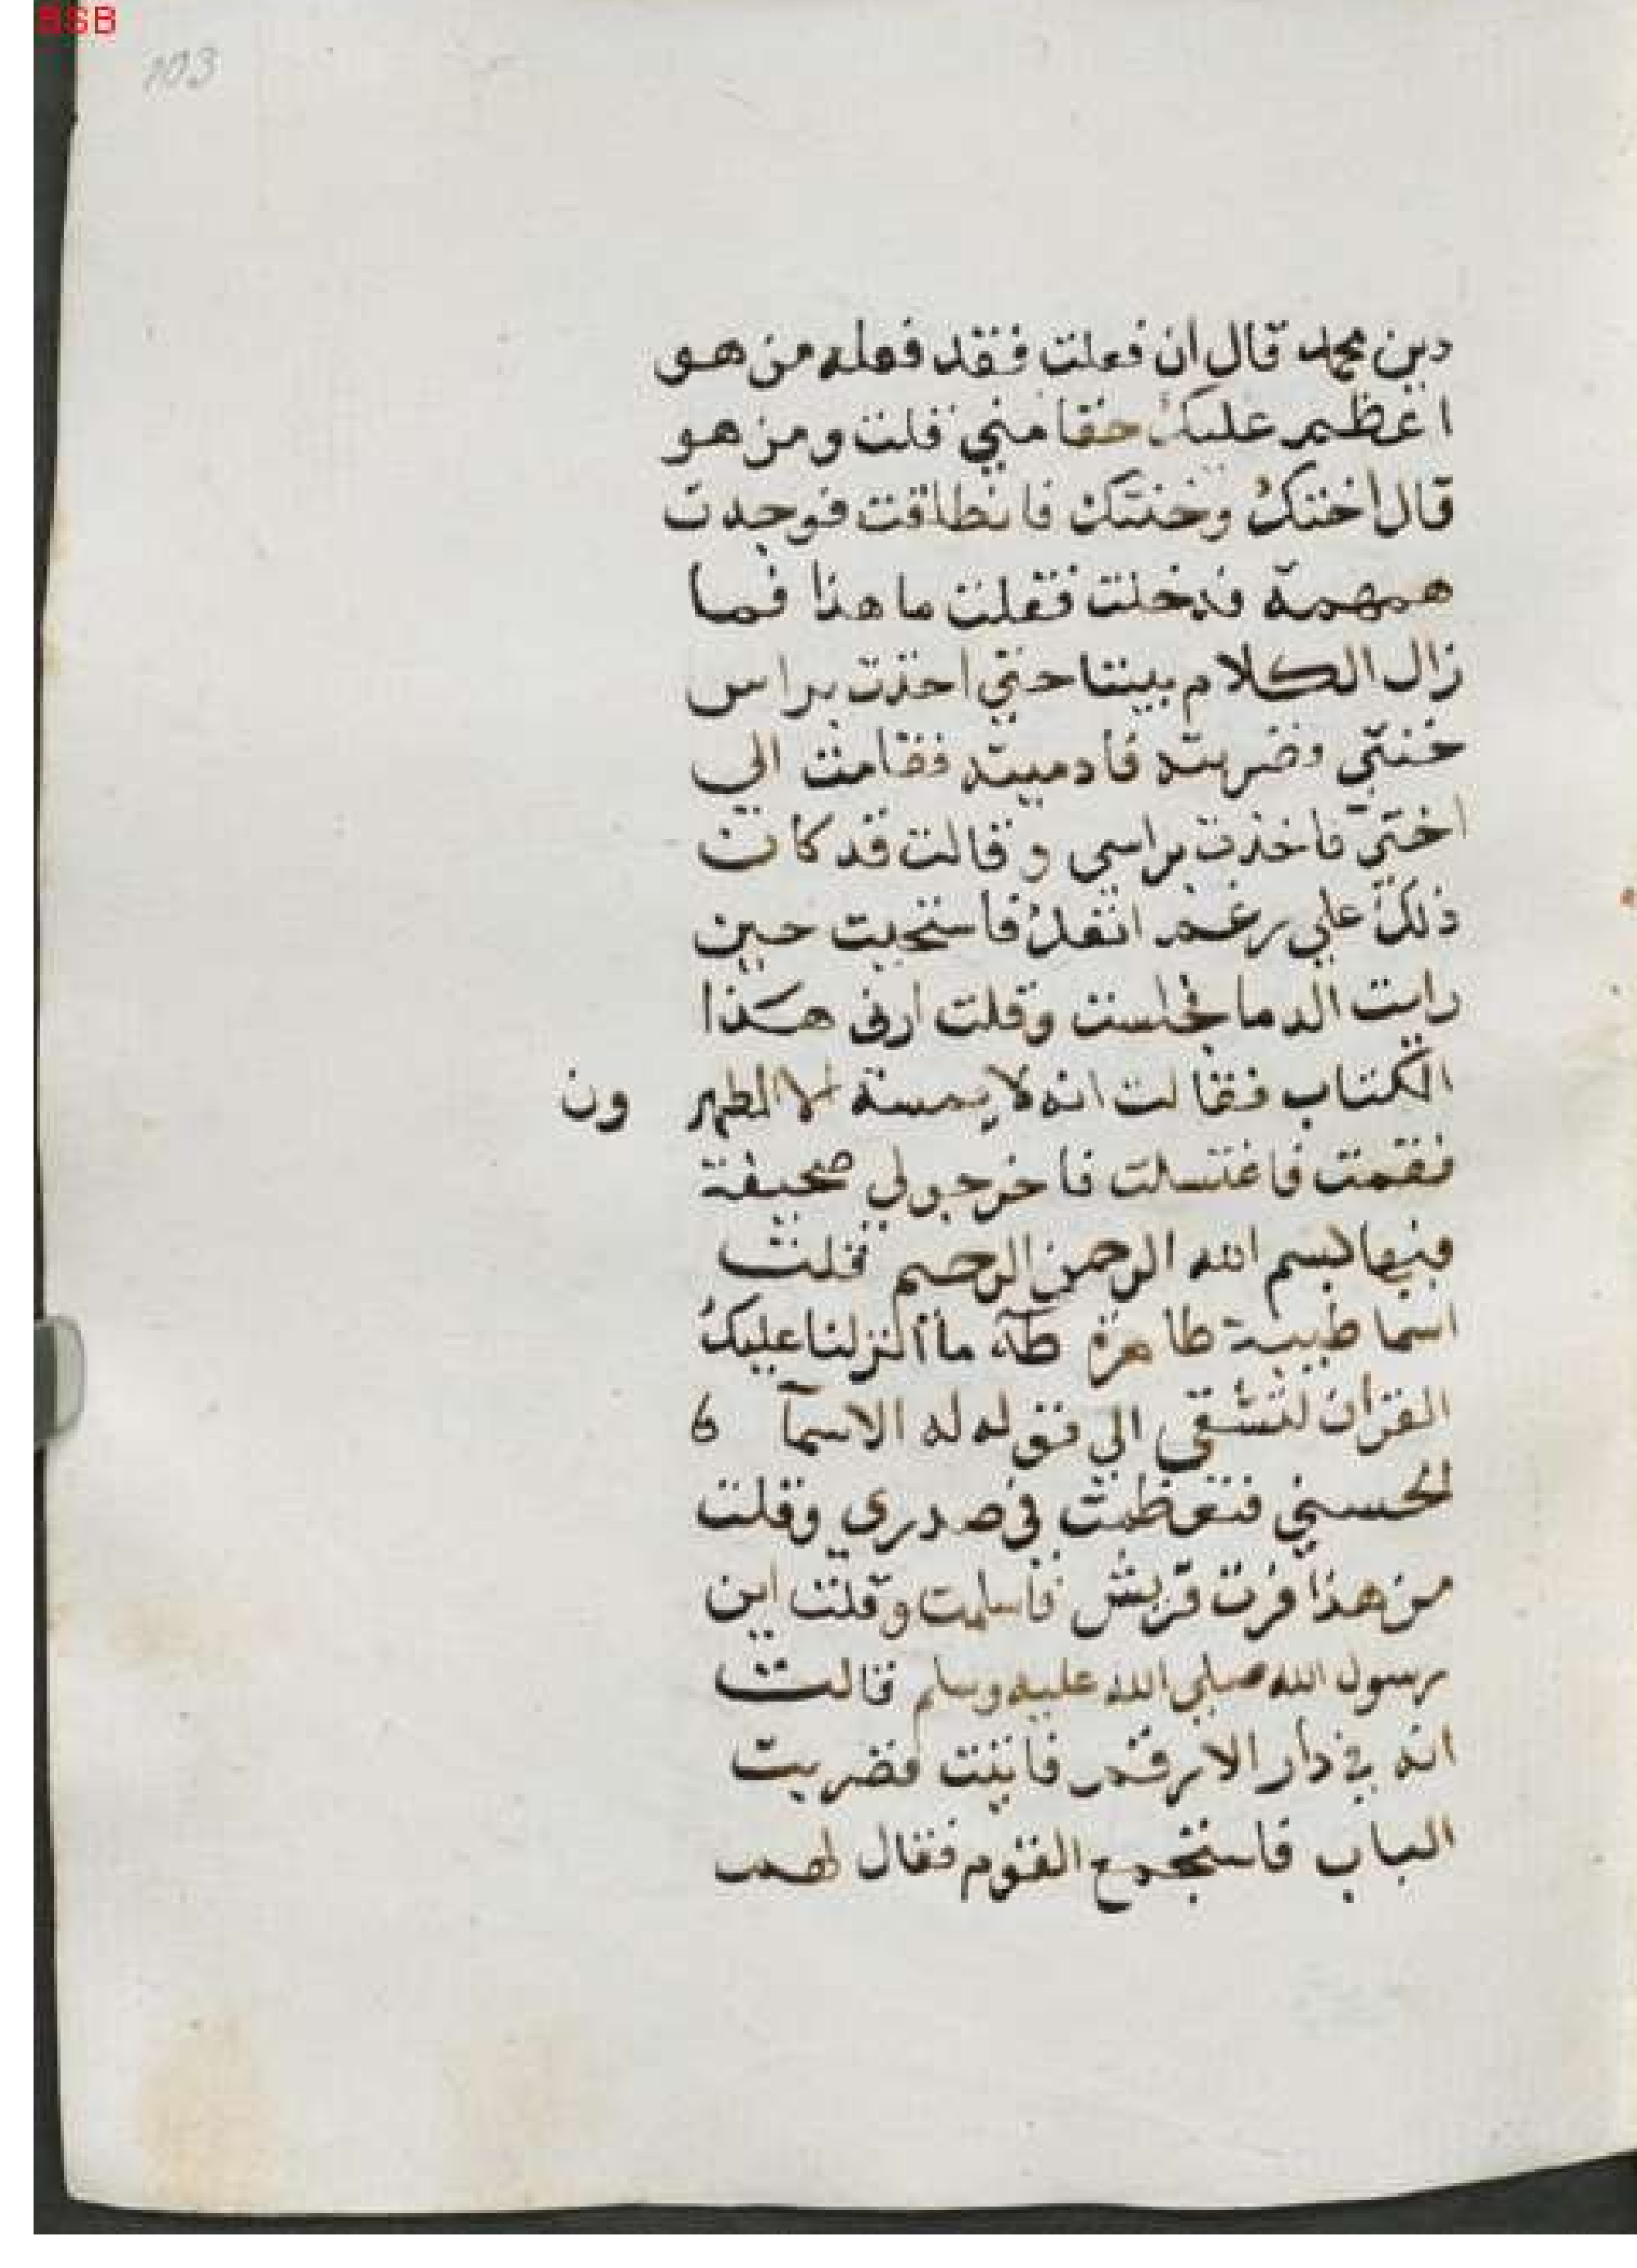 BSB
103
دين محمد قال ان فعلت فقد فعله من هو
اعظم عليك حقا مني قلت ومن هو
قال اختك وختنك فانطلقت فوجدت
همهمة فدخلت فقلت ما هذا فما
زال الكلام بيننا حتي اخذت براس
ختني وضربته فادميته فقامت الي
اختي فاخذت براسي وقالت قد كان
ذلك علي رغم انفك فاستحيت حين
رايت الدما فجلست وقلت ارني هذا
الكتاب فقالت انه لا يمسه الا المطهر ون
فقمت فاغتسلت فاخرجو لي صحيفة
فيها بسم الله الرحمن الرحيم فقلت
اسما طيبة طاهرة طه ما أنزلنا عليك
القران لتشقي الي قوله له الاسمآ 6
الحسني فتعظمت في صدري وقلت
من هذا فرت قريش فاسلمت وقلت اين
رسول الله صلي الله عليه وسلم قالت
انه في دار الارقم فاتيت فضربت
الباب فاستجمع القوم فقال لهم